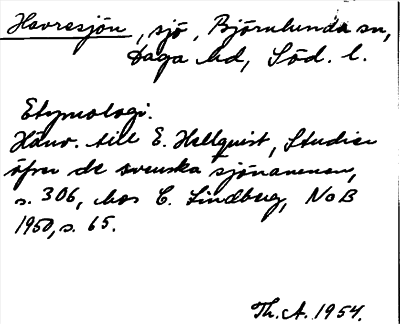 Havresjön, sjö, Björnlunda sn,
Daga hd, Söd. l.
Etymologi.
Hänv. till E. Hellquist, Studier
öfver de svenska sjönamnen,
s. 306, hos C. Lindberg, NoB
1950, s. 65.
Th. A. 1954.